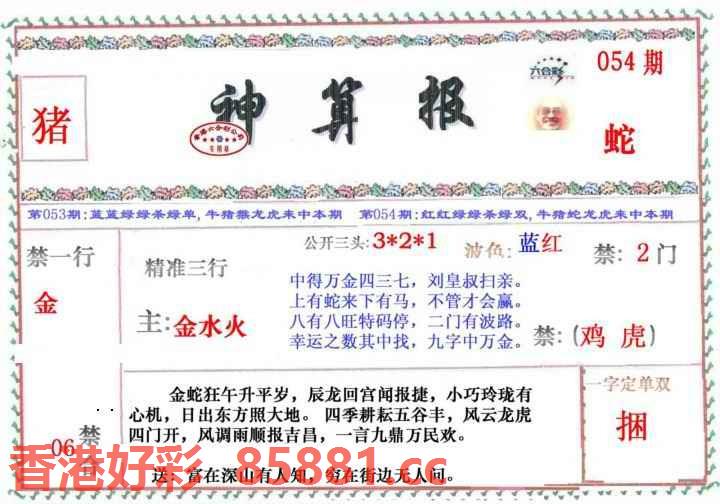 054期
六合彩
猪
神算报
香港六合彩公司
专用章
蛇
第053期:蓝蓝绿绿杀绿单,牛猪猴龙虎来中本期 第054期:红红绿绿杀绿双,牛猪蛇龙虎来中本期
禁一行
金
精准三行
主:金水火
公开三头:3*2*1 波色:蓝红 禁:2门
中得万金四三七，刘皇叔扫亲。
上有蛇来下有马，不管才会赢。
八有八旺特码停，二门有波路。
幸运之数其中找，九字中万金。
禁:(鸡 虎)
06禁合
金蛇狂午升平岁，辰龙回宫闻报捷，小巧玲珑有
心机，日出东方照大地。 四季耕耘五谷丰，风云龙虎
四门开，风调雨顺报吉昌，一言九鼎万民欢。
送：富在深山有人知，穷在街边无人问。
一字定单双
捆
香港好彩 85881.cc